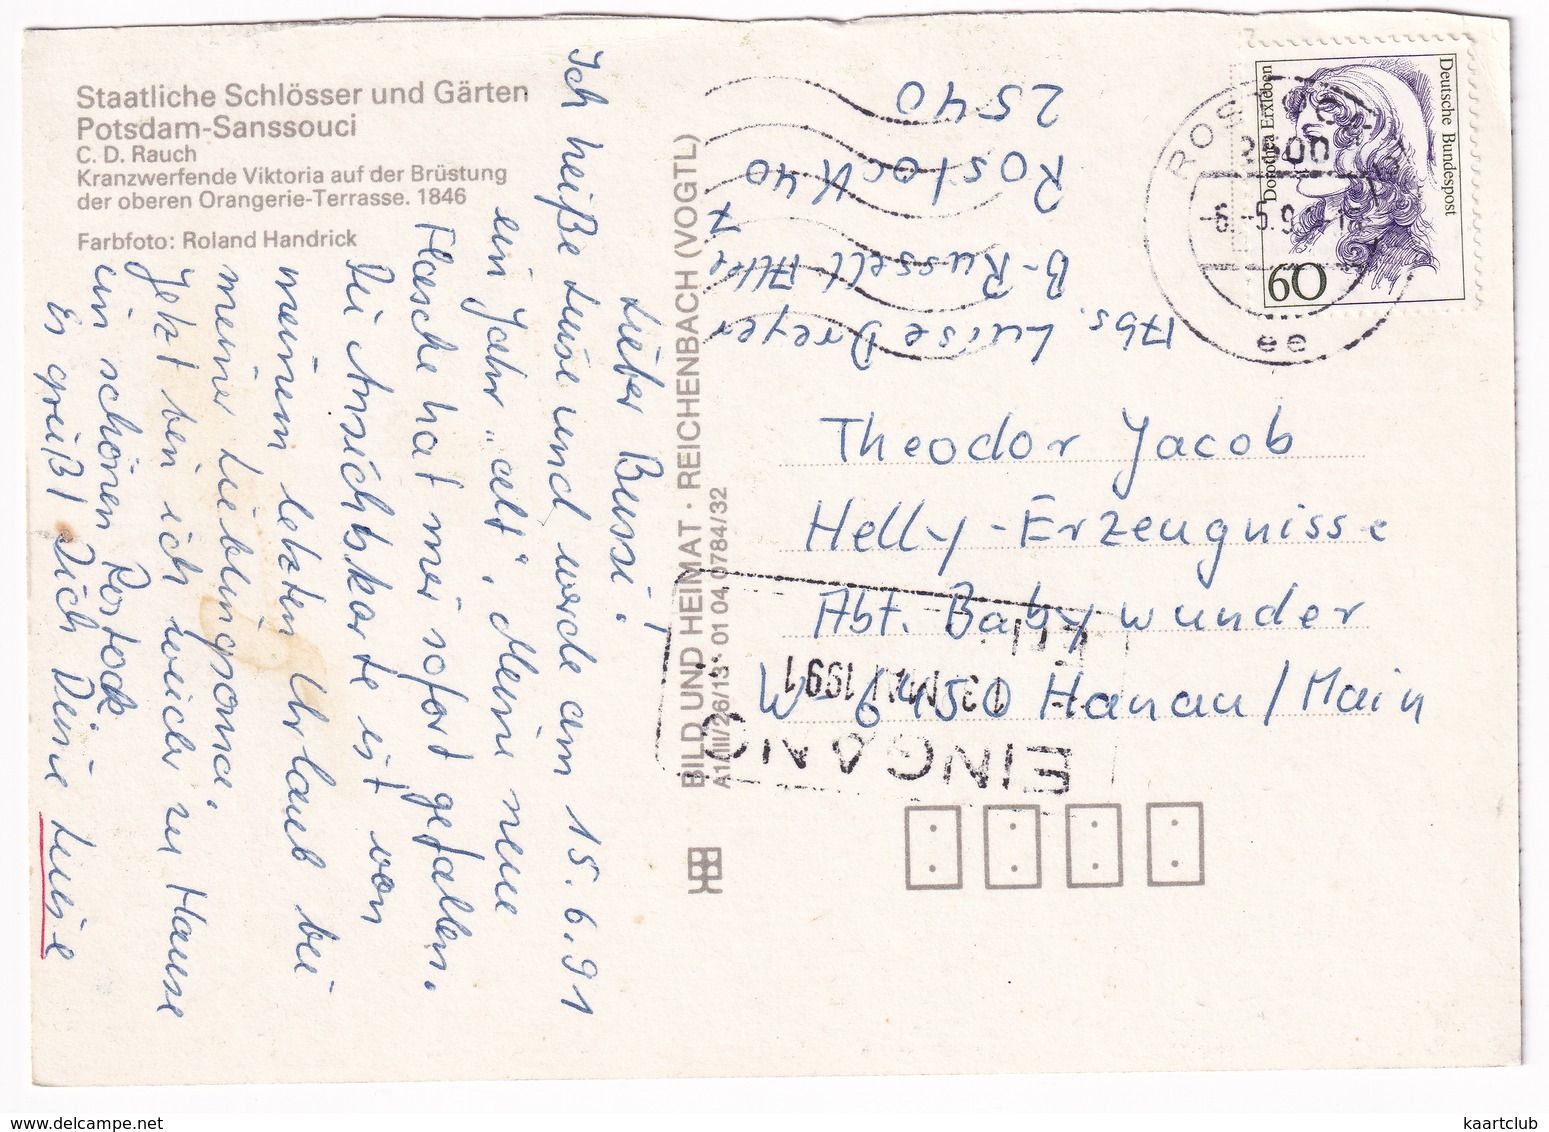 Staatliche Schlösser und Gärten
Potsdam-Sanssouci
C. D. Rauch
Kranzwerfende Viktoria auf der Brüstung
der oberen Orangerie-Terrasse. 1846
Farbfoto: Roland Handrick
Lieber Bussi!
Ich heiße Luise und werde am 15.6.91
ein Jahr „alt“. Meine neue
Flasche hat mir sofort gefallen.
Die Ansichtskarte ist von
meinem letzten Urlaub bei
meiner Lieblingsoma.
Jetzt bin ich wieder zu Hause
im schönen Rostock
Es grüßt Dich Deine Luise
BILD UND HEIMAT · REICHENBACH (VOGTL)
A1/III/26/13 01 04 0784/32
Abs. Luise Dreyer
B-Russell Allee
Rostock 40
2540
Deutsche Bundespost
Dorothea Erxleben
60
ROSTOCK
2500
ee
Theodor Jacob
Helly-Erzeugnisse
Abt. Babywunder
W-6450 Hanau/Main
EINGANG
13. MAI 1991
kaartclub
www.delcampe.net